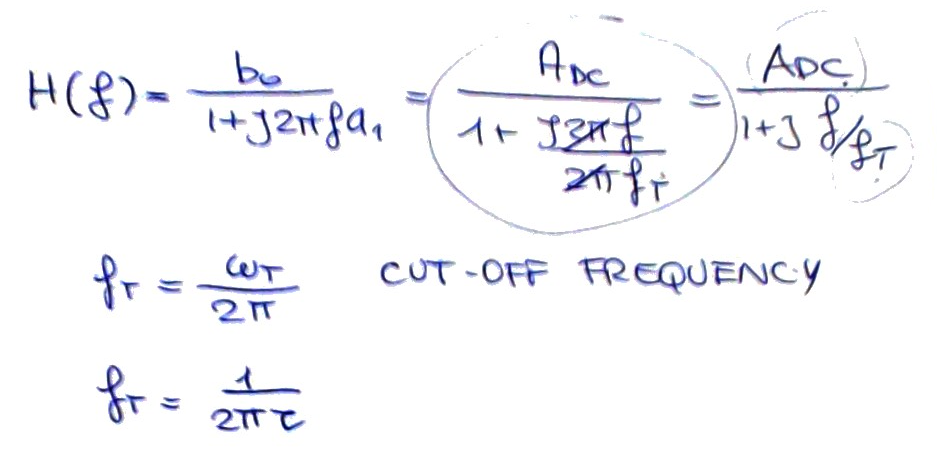 H(f) = b₀ / (1+J2πfa₁) = A_DC / (1+ J2πf / 2πf_T) = A_DC / (1+J f/f_T)
f_T = ω_T / 2π CUT-OFF FREQUENCY
f_T = 1 / 2πτ